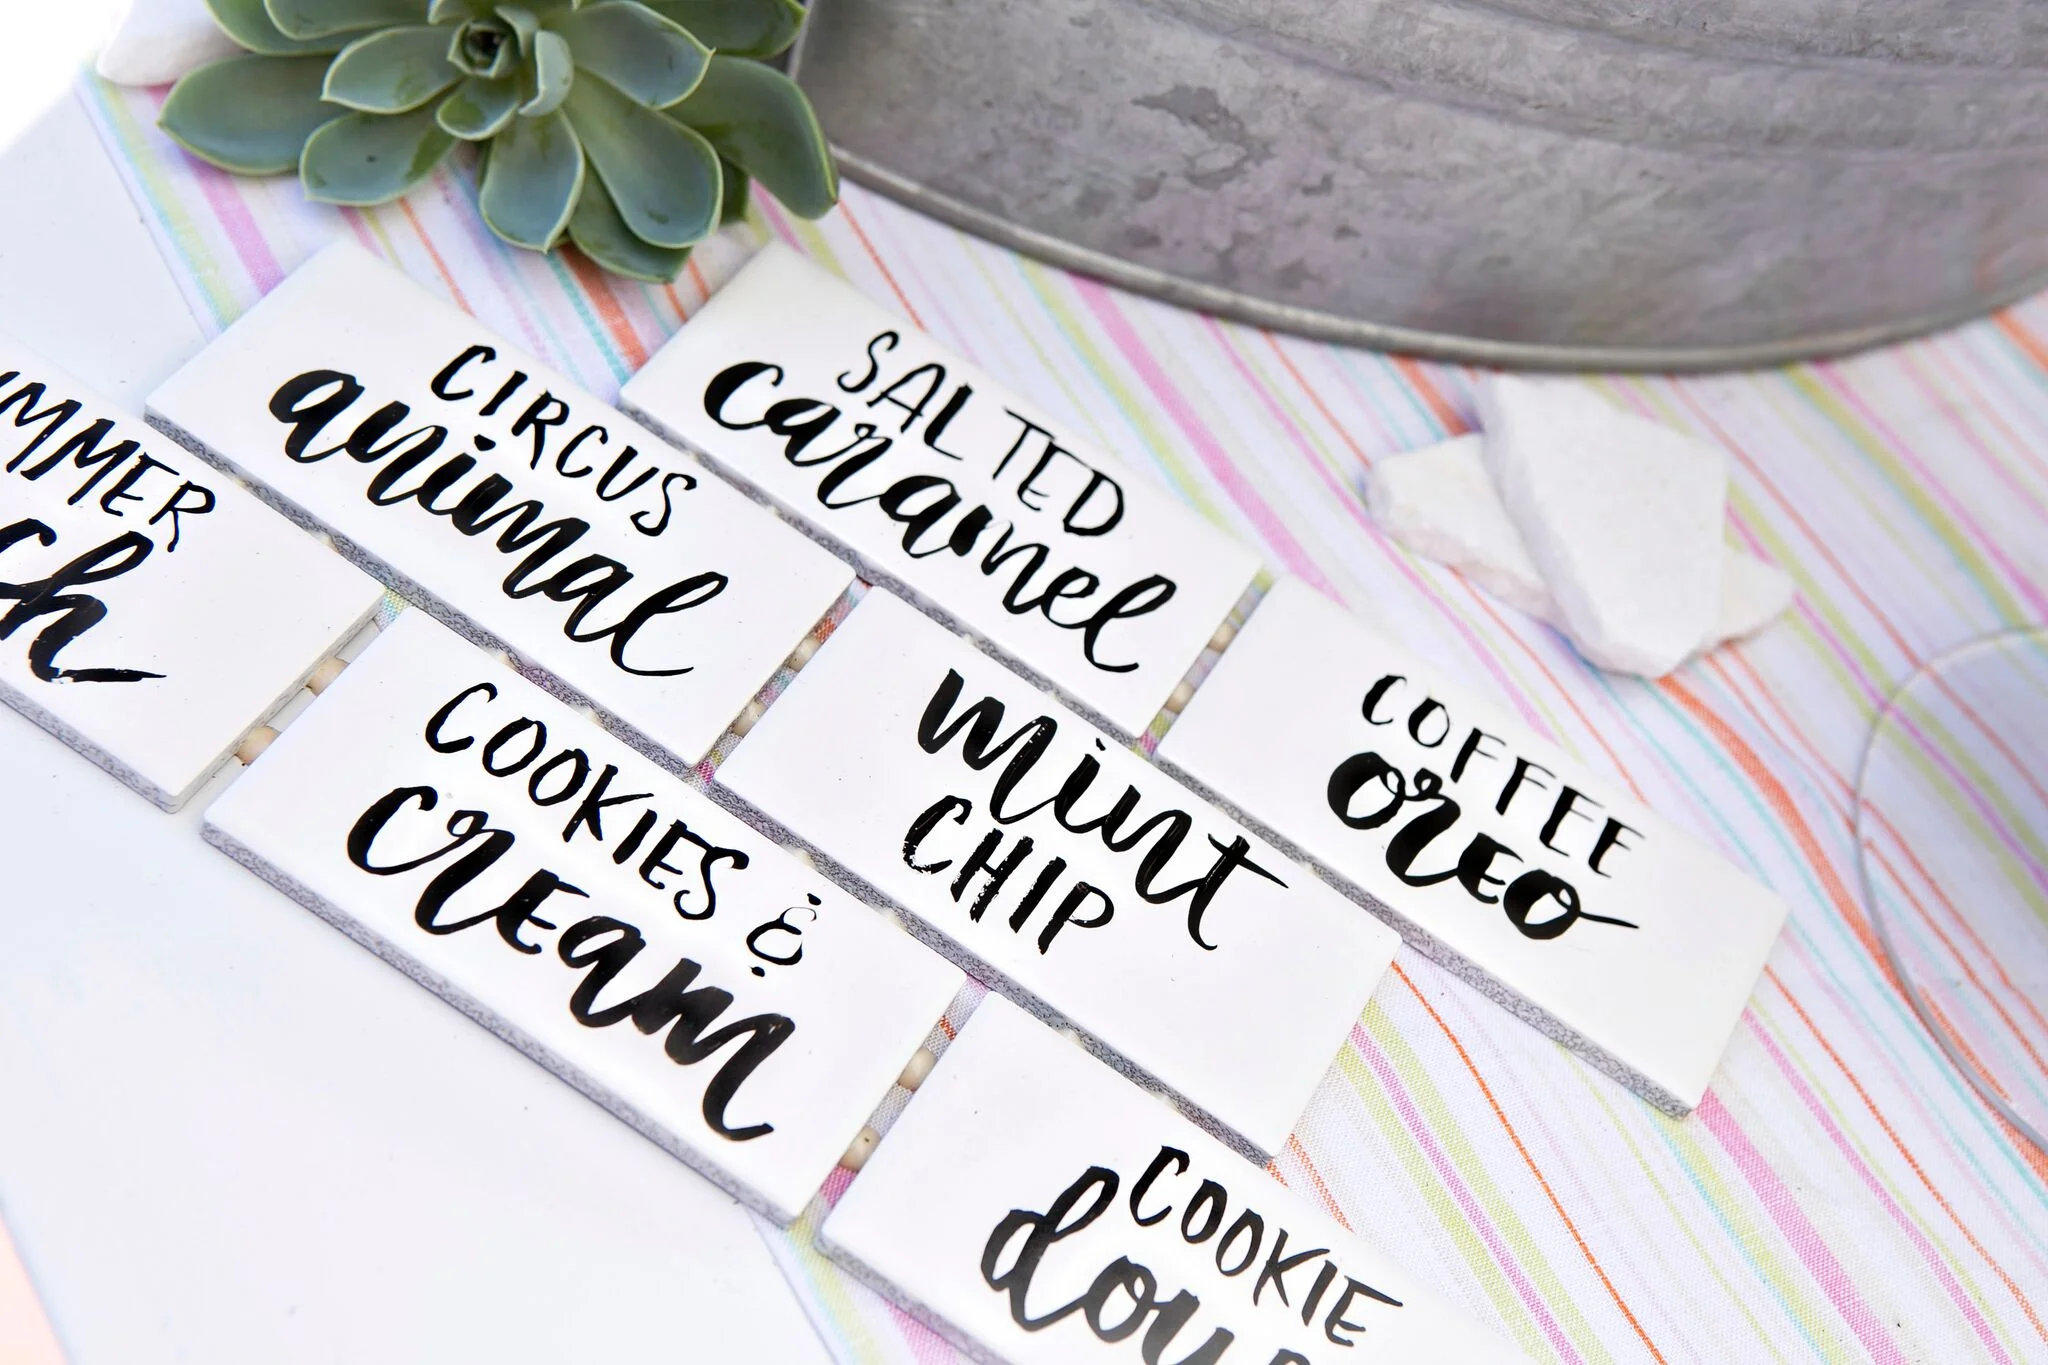 CIRCUS
animal
SALTED
caramel
COOKIES &
cream
mint
CHIP
COFFEE
oreo
COOKIE